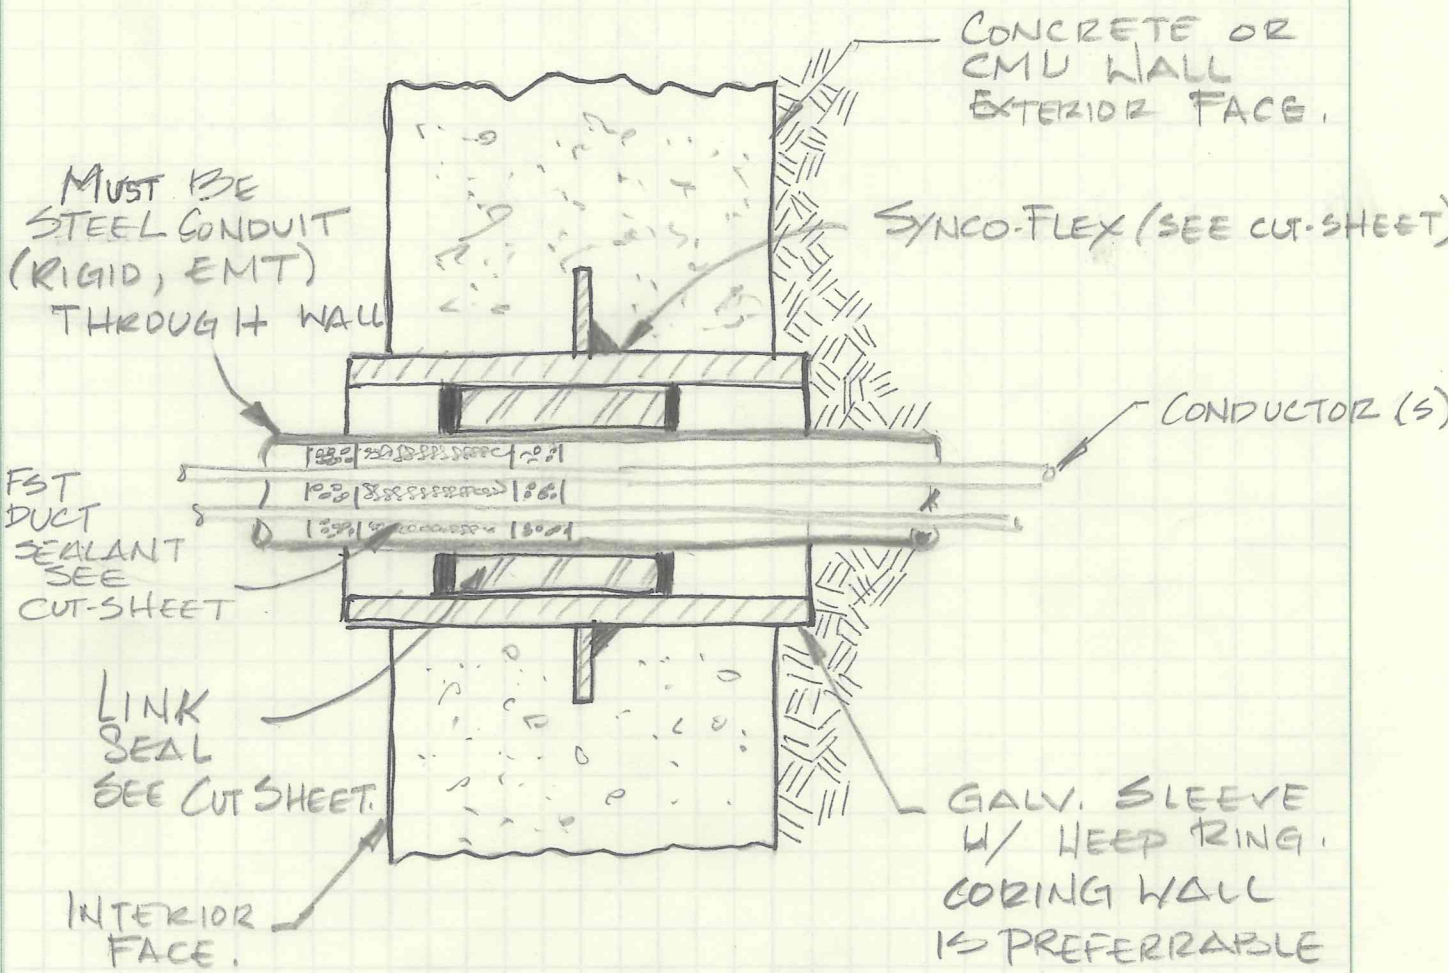 CONCRETE OR
CMU WALL
EXTERIOR FACE.
MUST BE
STEEL CONDUIT
(RIGID, EMT)
THROUGH WALL
SYNCO-FLEX (SEE CUT-SHEET)
CONDUCTOR (S)
FST
DUCT
SEALANT
SEE
CUT-SHEET
LINK
SEAL
SEE CUT SHEET.
GALV. SLEEVE
W/ HEEP RING.
CORING WALL
IS PREFERRABLE
INTERIOR
FACE.